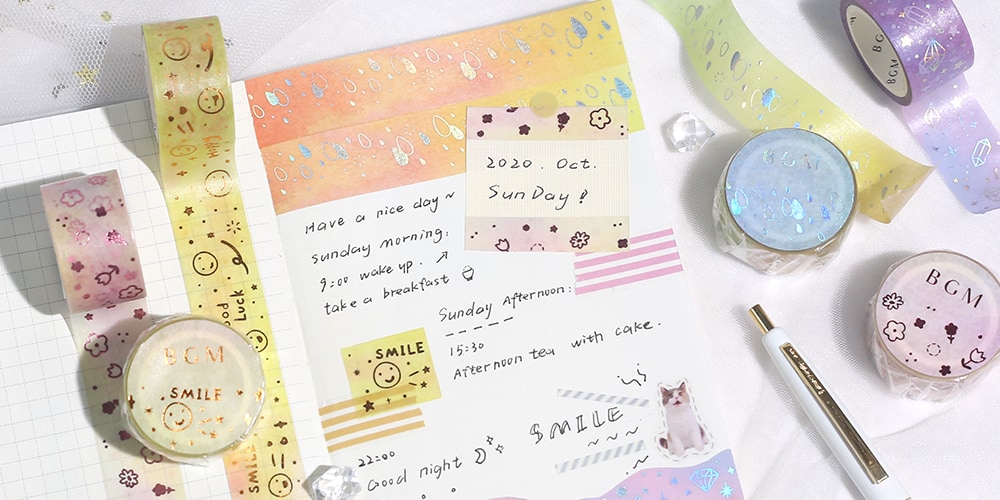 BGM
BGM
2020 . Oct.
SunDay !
Have a nice day ~
sunday morning:
9:00 wake up.
take a breakfast
Sunday Afternoon:
15:30
Afternoon tea with cake.
SMILE
SMILE
22:00
Good night
Good
Luck
SMILE
BGM
SMILE
BGM
BGM